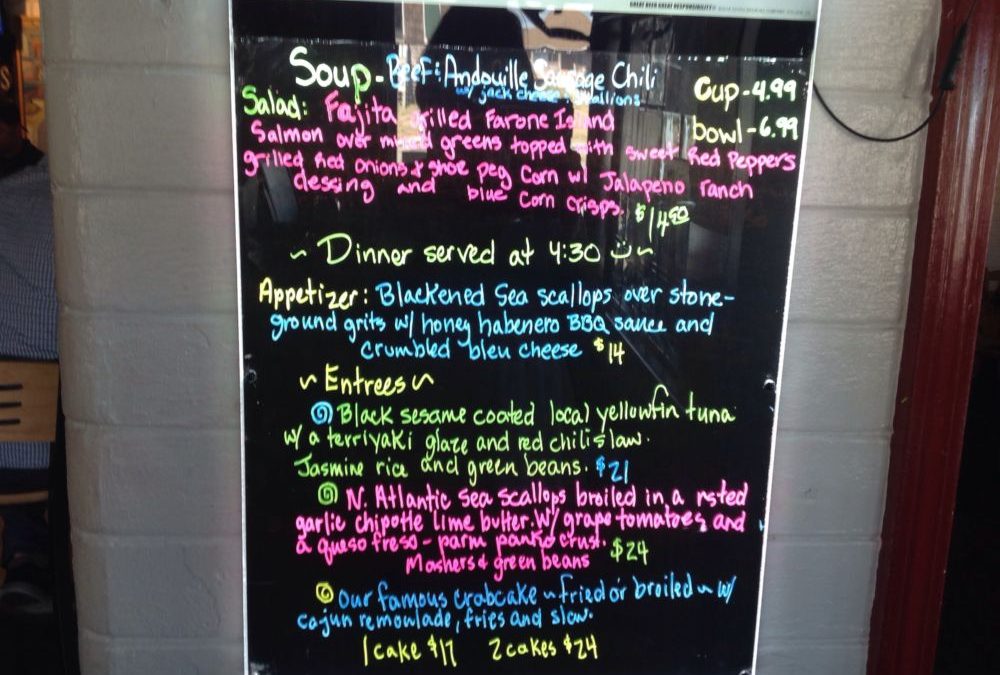 GREAT BEER GREAT RESPONSIBILITY®
Soup - Beef: Andouille Sausage Chili
w/ jack cheese: scallions
Cup - 4.99
bowl - 6.99
Salad: Fajita grilled Farone Island
Salmon over mixed greens topped with sweet Red Peppers
grilled Red Onions & shoe peg Corn w/ Jalapeno ranch
dessing and blue Corn Crisps. $14.50
~ Dinner served at 4:30 ~
Appetizer: Blackened Sea scallops over stone-
ground grits w/ honey habenero BBQ sauce and
crumbled bleu cheese $14
~ Entrees ~
Black sesame coated local yellowfin tuna
w/ a terriyaki glaze and red chili slaw.
Jasmine rice and green beans. $21
N. Atlantic Sea Scallops broiled in a rsted
garlic chipotle lime butter. w/ grape tomatoes and
a queso freso - parm panko crust. $24
Mashers & green beans
Our famous crabcake ~ fried or broiled ~ w/
cajun remoulade, fries and slaw.
1 cake $17 2 cakes $24